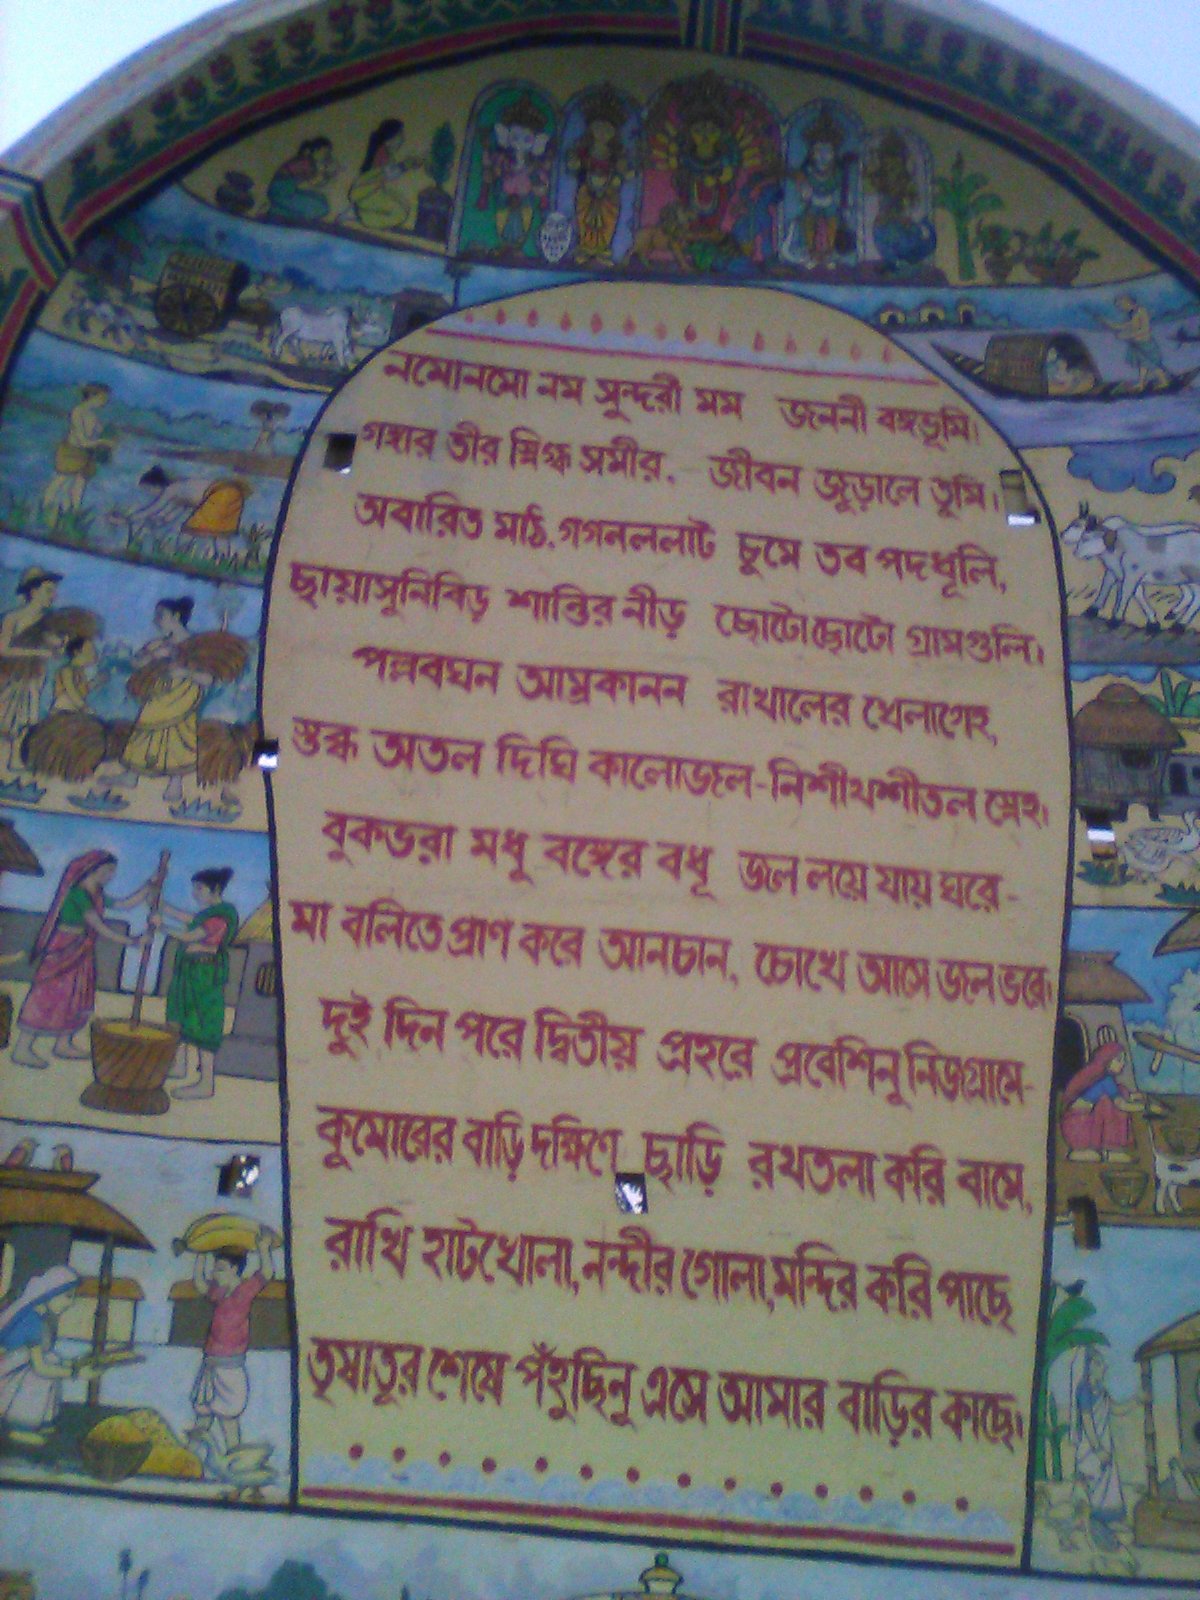 নমোনমো নম সুন্দরী মম জননী বঙ্গভূমি।
গঙ্গার তীর স্নিগ্ধ সমীর, জীবন জুড়ালে তুমি।
অবারিত মাঠ, গগনললাট চুমে তব পদধূলি,
ছায়াসুনিবিড় শান্তির নীড় ছোটো ছোটো গ্রামগুলি।
পল্লবঘন আম্রকানন রাখালের খেলাগেহ,
স্তব্ধ অতল দিঘি কালোজল-নিশীথশীতল স্নেহ।
বুকভরা মধু বঙ্গের বধূ জল লয়ে যায় ঘরে-
মা বলিতে প্রাণ করে আনচান, চোখে আসে জল ভরে।
দুই দিন পরে দ্বিতীয় প্রহরে প্রবেশিনু নিজগ্রামে-
কুমোরের বাড়ি দক্ষিণে ছাড়ি রথতলা করি বামে,
রাখি হাটখোলা, নন্দীর গোলা, মন্দির করি পাছে
তৃষাতুর শেষে পঁহুছিনু এসে আমার বাড়ির কাছে।